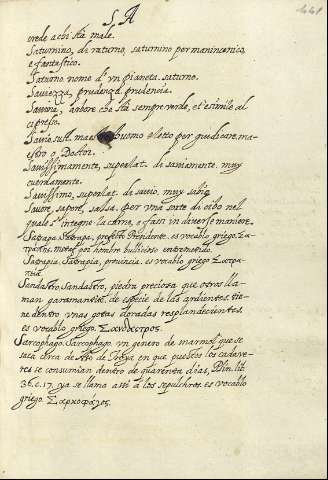 S A
441
vrede a chi stà male.
Saturnino, de saturno, saturnino por maninconico,
e fantastico.
Saturno nome d'vn pianeta. saturno.
Sauiezza, prudenza. prudencia.
Sauina, arbore che stà sempre verde, et è simile al
cipresso.
Sauio, sust. huomo eletto per giudicare, ma-
estro o Doctor.
Sauissimamente, superlat. de sauiamente. muy
cuerdamente.
Sauissimo, superlat. de sauio, muy sabio
Sauore, sapore, salsa. per vna sorte de cibo nel
quale s'integne la carne, e fassi in diuerse maniere.
Satrapa. Satrapa, prefetto Presidente. es vocablo griego. Σα-
por nombre bullicioso entremetido.
Satrapia, Satrapia, prouincia. es vocablo griego Σατρα-
πεία
Sandastro, Sandastro, piedra preciosa que otros lla-
man garamantite, de especie de las ardientes tie-
ne dentro vnas gotas doradas resplandecientes.
es vocablo griego. Σανδαστρος.
Sarcophago. Sarcophago. vn género de marmol que se
saca cerca de de Troya en que puestos los cadaue-
res se consumian dentro de quarenta dias, Plin. lib.
36. c. 17. ya se llama assi a los sepulchros. es vocablo
griego. Σαρκοφάγος.